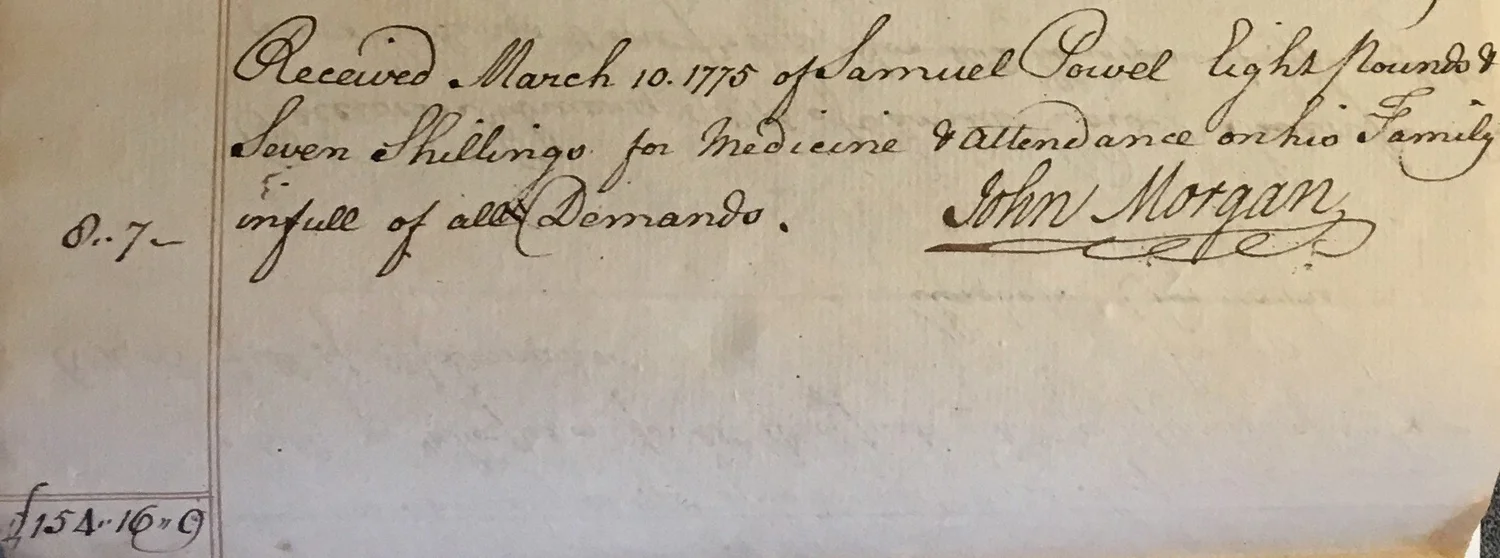 Received March 10. 1775 of Samuel Powel Eight Pounds &
Seven Shillings for Medicine & attendance on his Family
8..7– in full of all Demands. John Morgan
£154..16..9